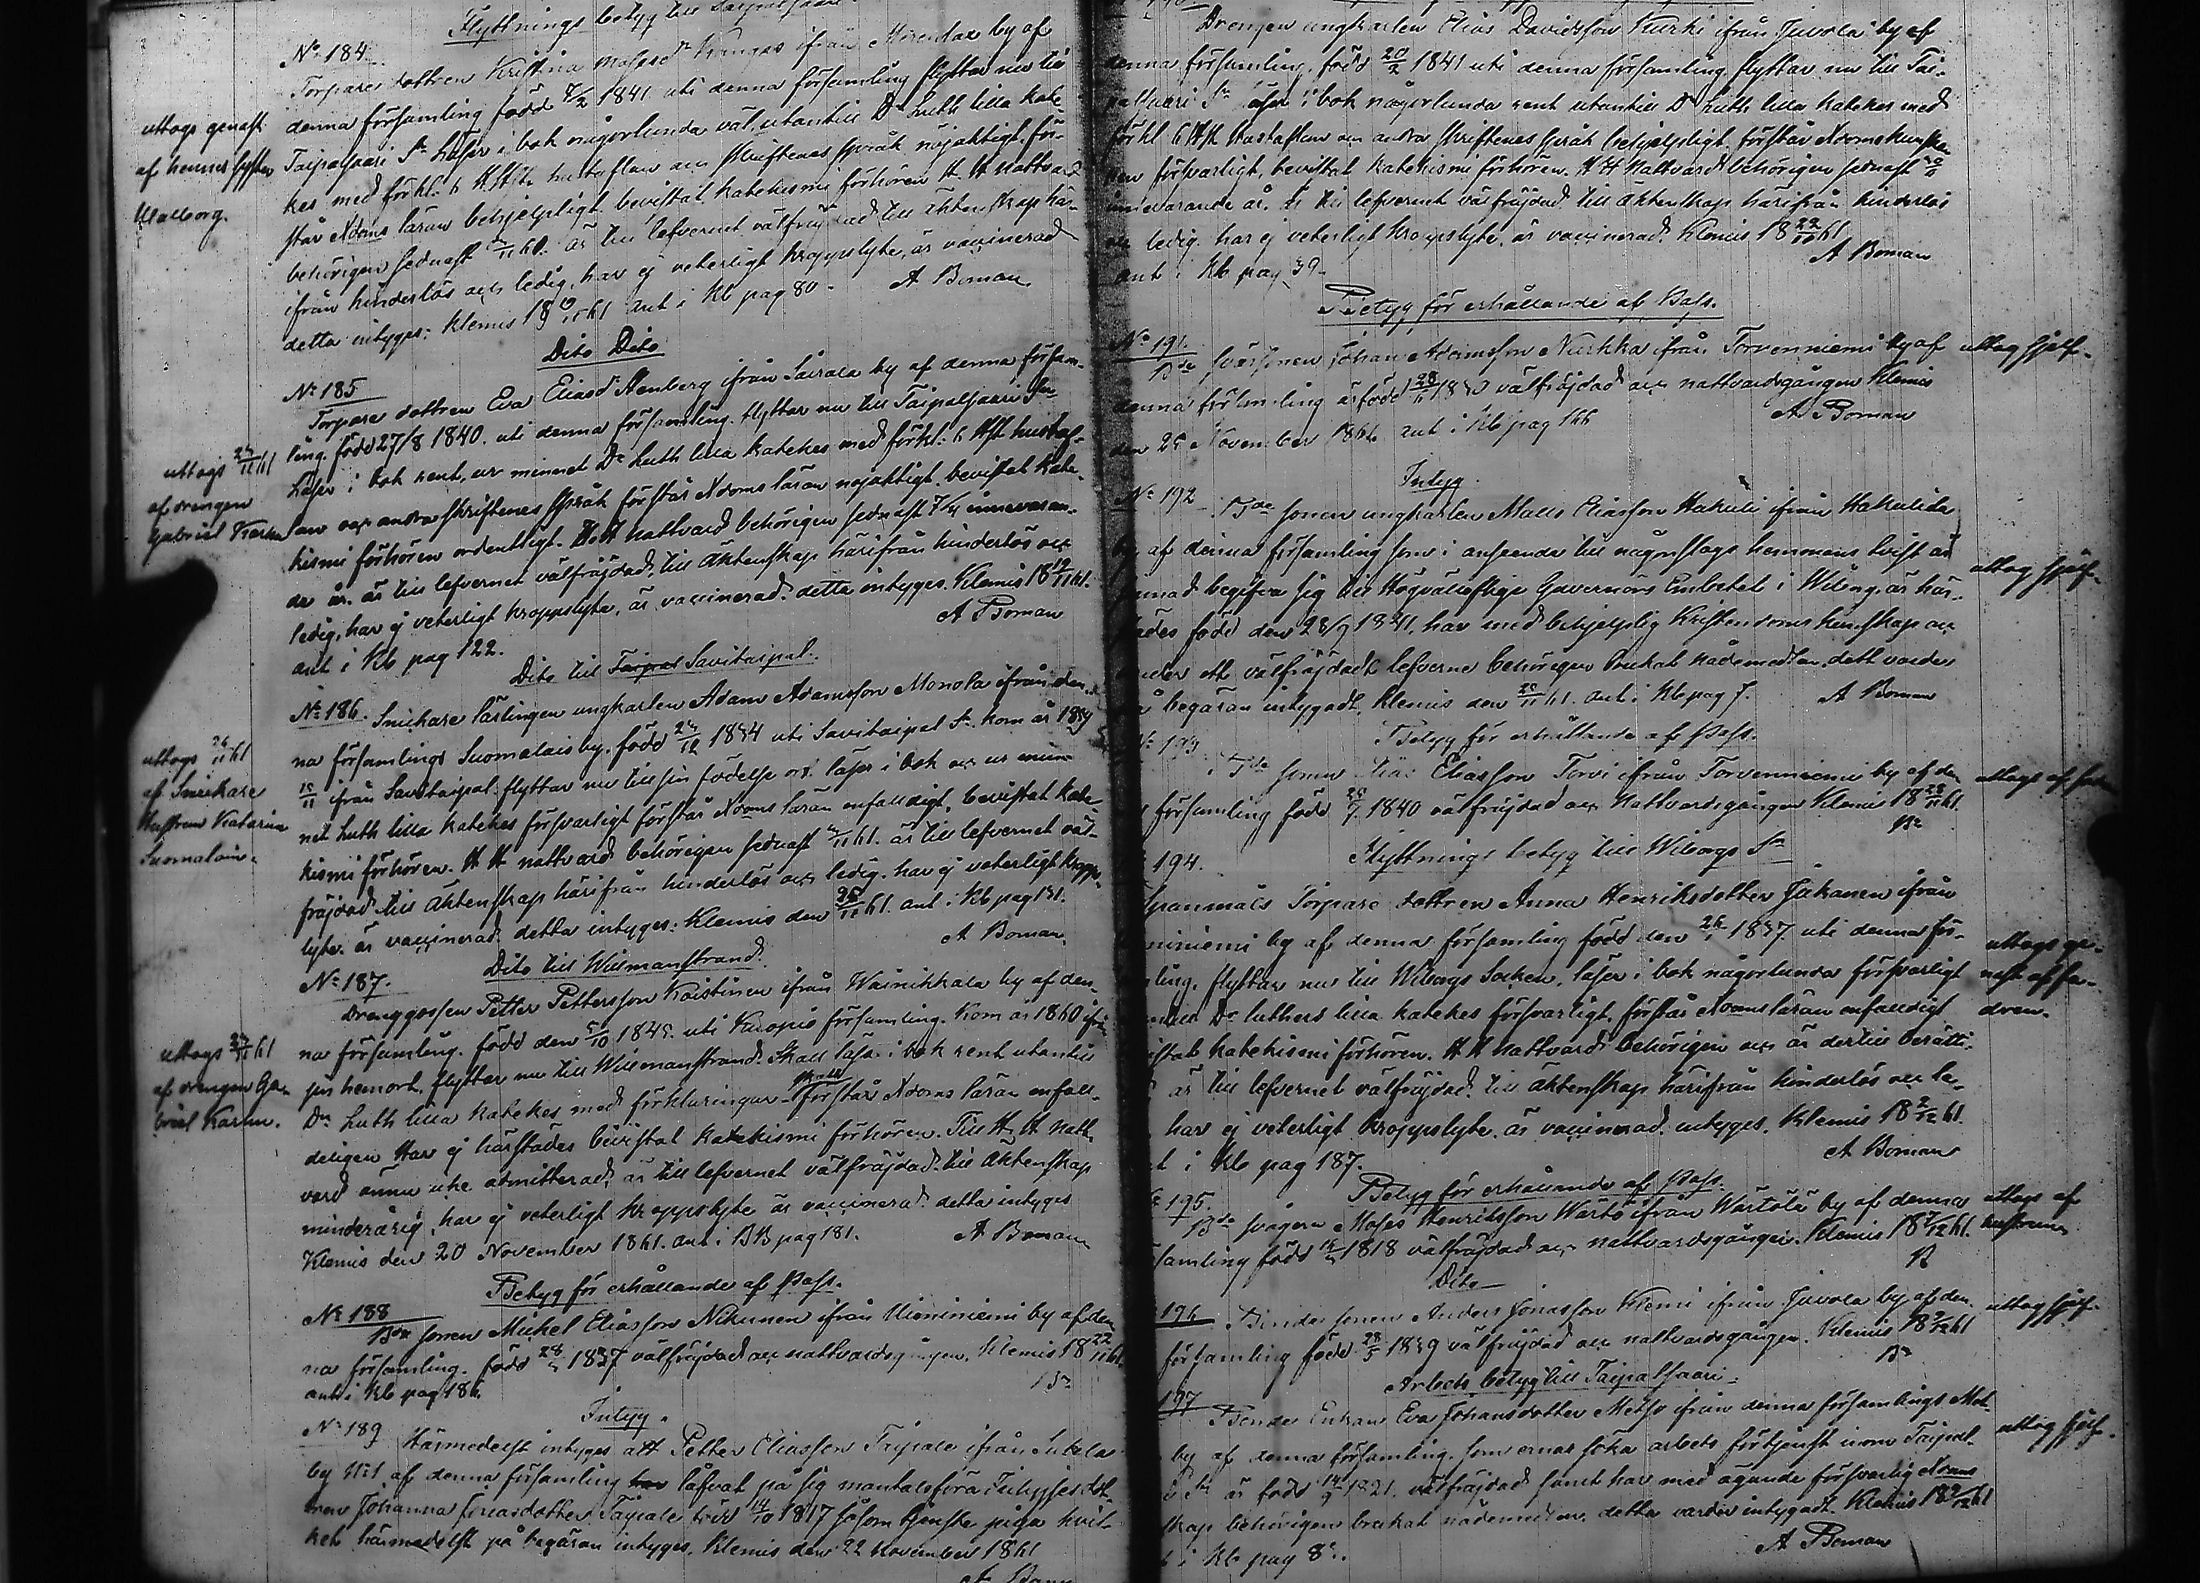 Flyttnings betyg till Taipalsaari
No 184.
Torpare dottren Kristina Mosesdr Kangas ifrån by af
denna församling född 1841 uti denna församling flyttar nu till
Taipalsaari Sn Läser i bok någorlunda väl, utantill Dr Luth lilla kate-
kes med förkl: 6 hustaflan och skriftenes språk nöjaktigt, för-
står Adams läran behjelpligt bevistat katekismi förhören H. H nattvard
behörigen sednast är till lefvernet välfräjdad till äktenskap här-
ifrån hinderlös och ledig, har ej veterligt kroppslyte, är vaccinerad
detta intyges: Klemis 18 61 ant i Kb pag 80 - A Boman
uttogs genast
af hennes syster
Walborg.
Dito Dito
No 185
Torpare dottren Eva Eliasdr Stenberg ifrån Sairala by af denna försam-
ling. född 27/8 1840. uti denna församling. flyttar nu till Taipalsaari Sn
Läser i bok rent, ur minnet Dr Luth lilla katekes med förkl: 6 hustaf-
lan och andra skriftenes språk förstår Adams läran nöjaktigt, bevistat kate-
kismi förhören ordentligt. H. H nattvard behörigen sednast innevaran-
de år. är till lefvernet välfräjdad, till äktenskap härifrån hinderlös och
ledig, har ej veterligt kroppslyte, är vaccinerad. detta intyges. Klemis 18 61.
ant i Kb pag 122. A Boman
uttogs 61
af drengen
Gabriel
Dito till Taipal Savitaipal.
No 186. Snickare lärlingen ungkarlen Adam Adamsson Monola ifrån den-
na församlings Suomalais by. född 1834 uti Savitaipal Sn kom år 1859
ifrån Savitaipal. flyttar nu till sin födelse ort. läser i bok och ur min-
net Luth lilla katekes försvarligt förstår Adams läran enfaldigt, bevistat kate-
kismi förhören. H H nattvard behörigen sednast 61. är till lefvernet väl-
fräjdad till äktenskap härifrån hinderlös och ledig. har ej veterligt kropps-
lyte. är vaccinerad. detta intyges: Klemis den 61. ant i Kb pag 131.
A Boman
uttogs 61
af Snickare
Hustrun Katarina
Suomalain.
Dito till Willmanstrand
No 187.
Drenggossen Petter Pettersson Koistinen ifrån Wainikkala by af den-
na församling. född den 5/10 1845. uti Kuopio församling. Kom år 1860 ifrån
sin hemort. flyttar nu till Willmanstrand. Skall läsa i bok rent utantill
Dr Luth lilla katekes med förklaringar - skall förstår Adams läran enfal-
deligen Har ej härstädes bevistat katekismi förhören. Till H. H natt-
vard ännu icke admitterad, är till lefvernet välfräjdad. till äktenskap
minderårig, har ej veterligt kroppslyte är vaccinerad. detta intyges
Klemis den 20 November 1861. ant i BB pag 181. A Boman
uttogs 61
af drengen Ga-
briel
Betyg för erhållande af Pass.
No 188
Bde sonen Mickel Eliasson Nikunen ifrån by af den-
na församling. född 1837 välfräjdad och nattvardsgången. Klemis 18 22/11 61
ant i Kb pag 186 Bn
Intyg.
No 189 Härmedelst intyges att Petter Eliasson Taipale ifrån
by No 1 af denna församling har låfvat på sig mantalsföra dot-
tren Johanna Jonasdotter Taipale född 14/10 1817 såsom tjenste piga hvil-
ket härmedelst på begäran intyges, Klemis den 22 November 1861
Drengen ungkarlen Elias Davidsson Kurki ifrån Juvola by af
denna församling, född 20/2 1841 uti denna församling flyttar nu till Tai-
palsaari Sn läser i bok någorlunda rent utantill Dr Luth lilla katekes med
förkl 6 Hustaflan och andra skriftenes språk behjelpligt. förstår Adams
försvarligt, bevistat katekismi förhören. H H nattvard behörigen sednast
innevarande år. är till lefvernet välfräjdad till äktenskap härifrån hinderlös
och ledig. har ej veterligt kroppslyte, är vaccinerad. Klemis 18 22/11 61
ant i Kb pag 39 A Boman
Betyg för erhållande af Pass.
No 191.
Bde Johan Adamsson ifrån Torvenniemi by af
denna församling är född 28/11 1830 välfräjdad och nattvardsgången Klemis
den 25 November 1861 ant i Kb pag 166 A Boman
uttog sjelf.
Intyg.
No 192 Bde sonen ungkarlen Mats Eliasson Hakuli ifrån Hakulila
by af denna församling som i anseende till någon slags hemmans tvist är
begifva sig till Högvälloflige Guvernörs Embetet i Wiborg, är här-
städes född den 28/9 1841, har med behjelplig Kristendoms kunskap och
under ett välfräjdadt lefverne behörigen brukat nådemedlen, dett varder
på begäran intygadt. Klemis den 61. ant i Kb pag 7. A Boman
uttog sjelf.
Betyg för erhållande af Pass.
No 193
Bde sonen Elias Eliasson Torvi ifrån Torvenniemi by af den
församling född 1840 välfräjdad och Nattvardsgången Klemis 18 28/11 61.
Bn
uttogs af
194. Flyttnings betyg till Wiborgs Sn
Torpare dottren Anna Henriksdotter Jakanen ifrån
by af denna församling född den 1837. uti denna för-
ling. flyttar nu till Wiborgs Socken, läser i bok någorlunda försvarligt
Dr luthers lilla katekes försvarligt, förstår Adams läran enfalldigt
katekismi förhören. H H nattvard behörigen och är dertill berätti-
är till lefvernet välfräjdad till äktenskap härifrån hinderlös och le-
har ej veterligt kroppslyte. är vaccinerad. intyges. Klemis 18 2/12 61.
i Kb pag 187. A Boman
uttogs ge-
nast af fa-
dren.
Betyg för erhållande af Pass.
195.
Bde svågern Moses Henriksson Wärtö ifrån Wärtölä by af denna
samling född 1818 välfräjdad och nattvardsgången. Klemis 18 61.
B
uttogs af
hustrun
Dito
196 Bonde sonen Anders Jonasson Klemi ifrån Juvola by af den
församling född 28/5 1839 välfräjdad och nattvardsgången. Klemis 18 61
Bn
uttog sjelf.
Arbets betyg till Taipalsaari
197
Bonde Enkan Eva Johansdotter Metso ifrån denna församlings
by af denna församling. som ernar söka arbets förtjenst inom Taipal-
Sn är född 14/9 1821. välfräjdad samt har med ägande försvarlig Adams
behörigen brukat nådemedlen. detta varder intygadt. Klemis 18 61
i Kb pag 8 A Boman
uttog sjelf.